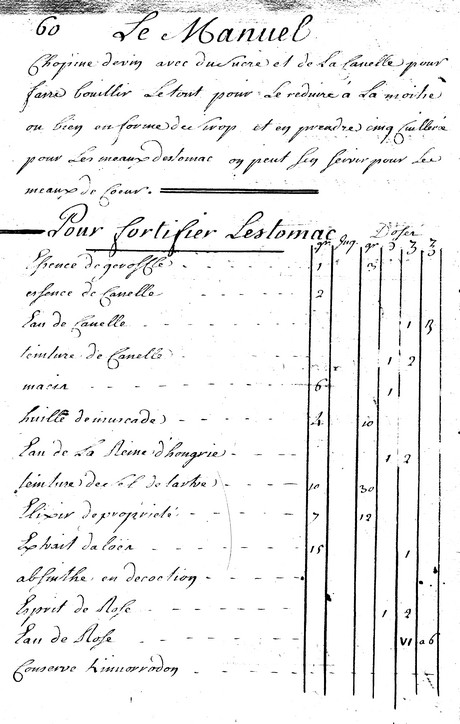 60 Le Manuel
Chopine de vin avec du Sucre et de La Canelle pour
faire bouillir Le tout pour Le reduire a La moitié
ou bien en forme de Sirop et en prendre cinq Cuillerée
pour Les meaux destomac on peut s'en servir pour Les
meaux de Coeur.
Pour fortifier Lestomac Doses
gr. gr ʒ ʒ ʒ
Essence de geroffle 1 3
essence de Canelle 2
Eau de Canelle 1 B
teinture de Canelle 1 2
macis 6 1
huille de muscade 4 10
Eau de La Reine d'hongrie 1 2
teinture de sel de tartre 10 30
Elixir de propriété 7 12
Extrait daloës 15 1
absinthe en decoction
Esprit de Rose 1 2
Eau de Rose VI a 6
Conserve kinnorrodon